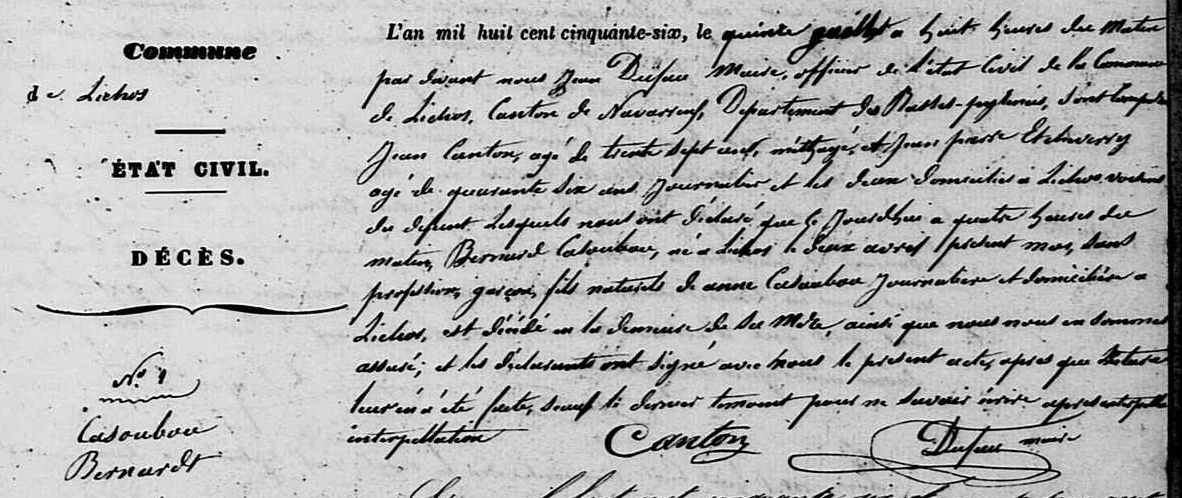 Commune
de Lichos
ÉTAT CIVIL.
DÉCÈS.
N.º 1
Casoubou
Bernardt
L'an mil huit cent cinquante-six, le quinze a huit heures du Matin
par devant nous Jean Dufau Maire, officier de l'état Civil de la Commune
de Lichos, Canton de Navarrenx, Departement des Basses-pyrénées, sont
Jean Canton, agé de trente sept ans, et Jean pierre Etcheverry
agé de quarante six ans Journalier et les deux domiciliés a Lichos voisins
du defunt Lesquels nous ont déclaré que Ce Jourdhui a quatre heures du
matin, Bernard Casoubou, né a Lichos le deux avril present mois, sans
profession, garçon, fils naturel de anne Casoubou Journaliere et domiciliée a
Lichos, est décédé en la demeure de sa Mère, ainsi que nous nous en sommes
assuré; et les déclarants ont signé avec nous le présent acte, apres que lecture
leur en a été faite, sauf le dernier temoint pour ne savoir écrire apres
interpellation
Canton
Dufau maire